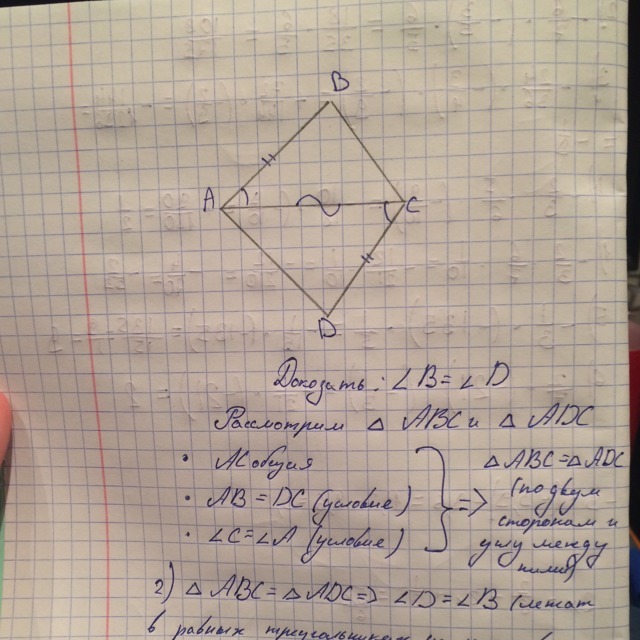 B
A
C
D
Доказать: ∠B = ∠D
Рассмотрим △ ABC и △ ADC
· AC общая
· AB = DC (условие)
· ∠C = ∠A (условие)
=> △ ABC = △ ADC
(по двум
сторонам и
углу между
ними)
2) △ ABC = △ ADC => ∠D = ∠B (лежат
в равных треугольниках